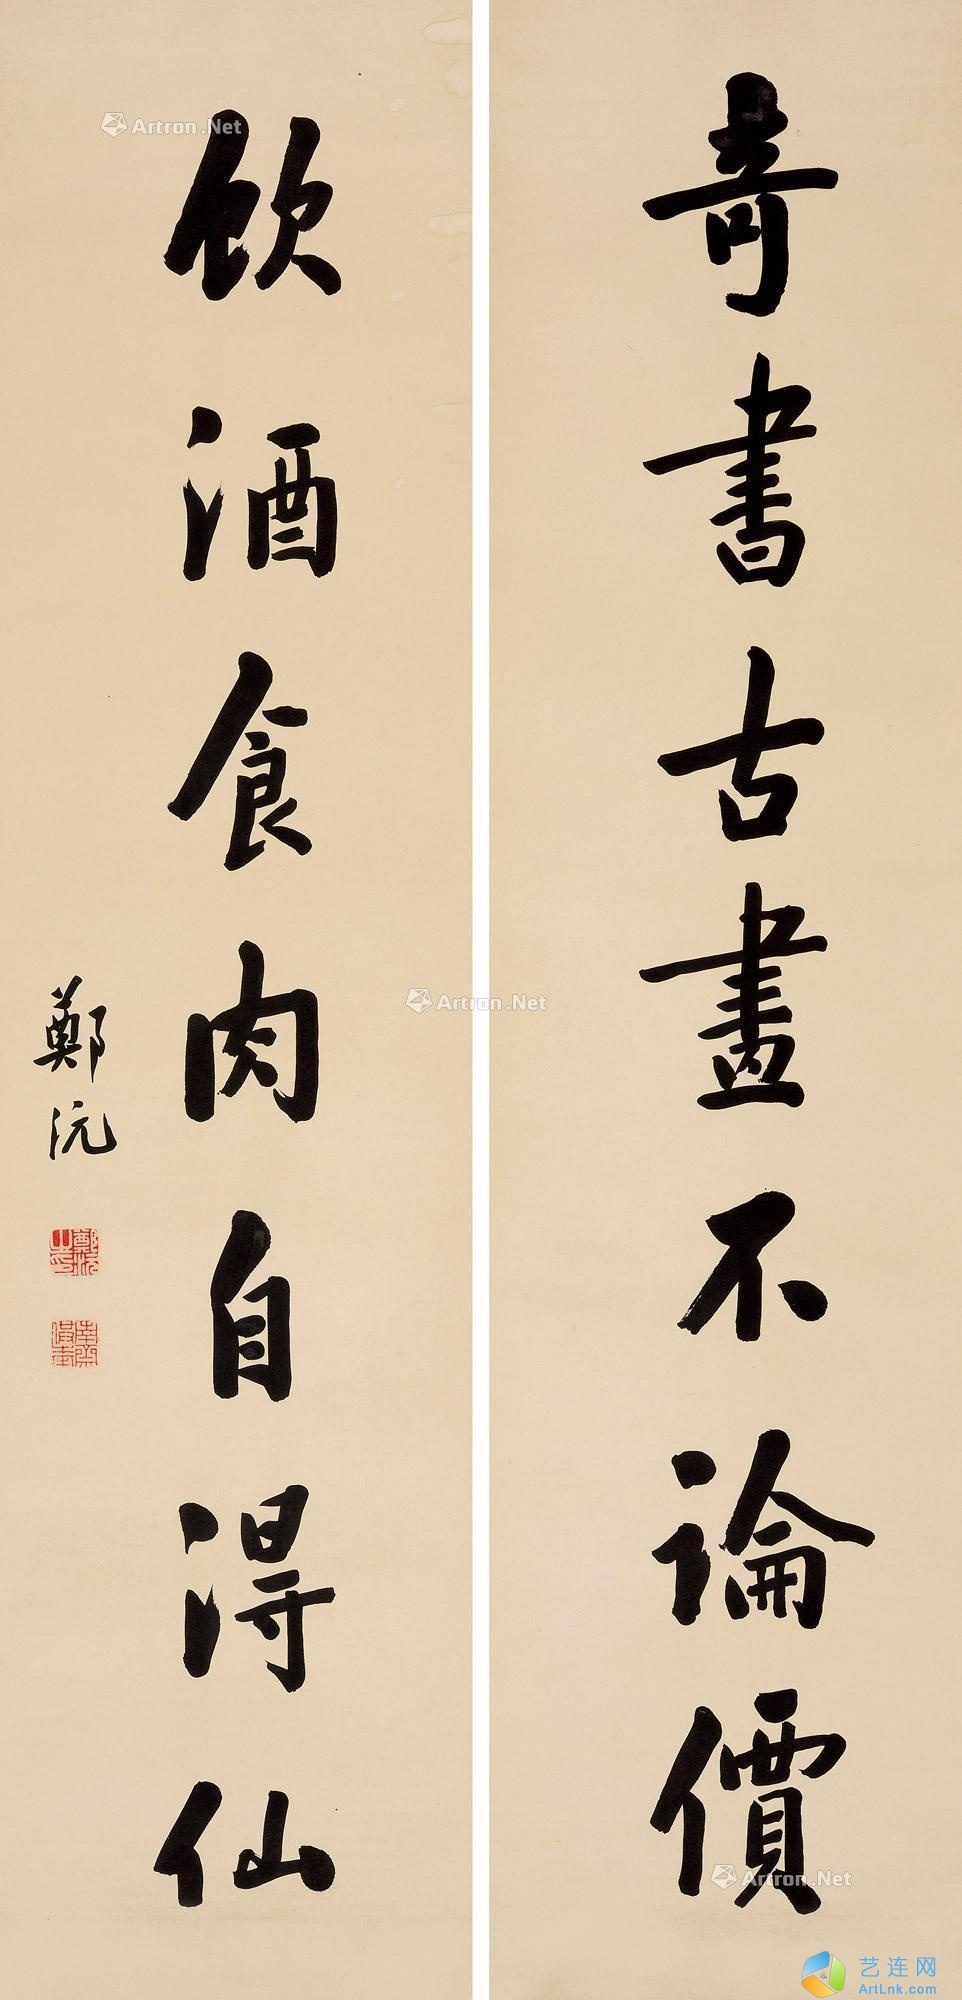 奇書古畫不論價
飲酒食肉自得仙
鄭沅
Artron.Net
Artron.Net
Artron.Net
艺连网
ArtLnk.com